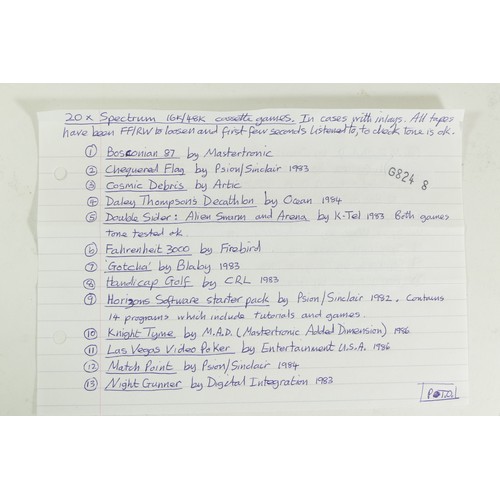 20 x Spectrum 16K/48K cassette games. In cases with inlays. All tapes
have been FF/RW to loosen and first few seconds listened to, to check tone is ok.
① Bosconian 87 by Mastertronic
② Chequered Flag by Psion/Sinclair 1983
③ Cosmic Debris by Artic
G824 8
④ Daley Thompsons Decathlon by Ocean 1984
⑤ Double Sider: Alien Swarm and Arena by K-Tel 1983 Both games
tone tested ok
⑥ Fahrenheit 3000 by Firebird
⑦ 'Gotcha' by Blaby 1983
⑧ Handicap Golf by CRL 1983
⑨ Horizons Software starter pack by Psion/Sinclair 1982. Contains
14 programs which include tutorials and games.
⑩ Knight Tyme by M.A.D. (Mastertronic Added Dimension) 1986
⑪ Las Vegas Video Poker by Entertainment U.S.A. 1986
⑫ Match Point by Psion/Sinclair 1984
⑬ Night Gunner by Digital Integration 1983
P.T.O.